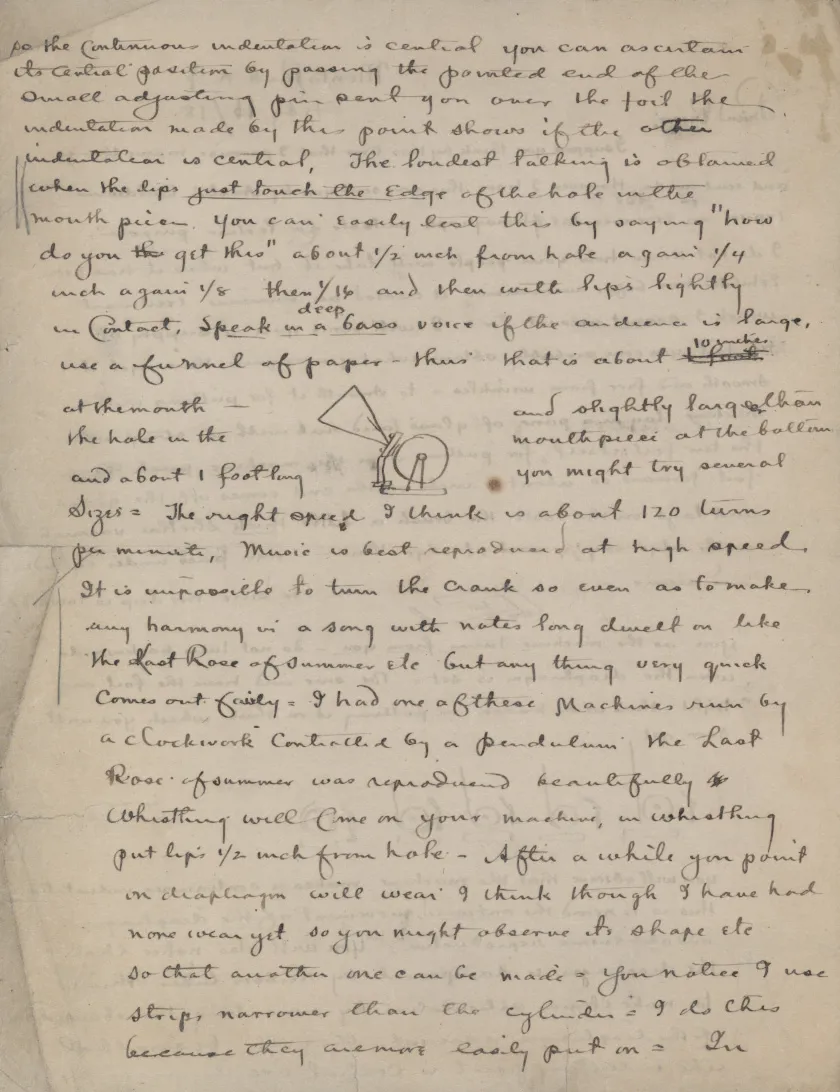 so the Continuous indentation is central you can ascertain
its central position by passing the pointed end of the
small adjusting pin sent you over the foil the
indentation made by this point shows if the other
indentation is central, The loudest talking is obtained
when the lips just touch the Edge of the hole in the
mouth piece. you can easily test this by saying "how
do you the get this" about 1/2 inch from hole again 1/4
inch again 1/8 then 1/16 and then with lips lightly
deep
in Contact, Speak in a bass voice if the audience is large,
10 inches
use a funnel of paper - thus that is about 1 foot
at the mouth — and slightly larger than
the hole in the mouthpiece at the bottom
and about 1 foot long you might try several
Sizes = The right speed I think is about 120 turns
per minute, Music is best reproduced at high speed.
It is impossible to turn the Crank so even as to make
any harmony in a song with notes long dwelt on like
the Last Rose of summer etc but any thing very quick
Comes out fairly = I had one of these Machines run by
a Clockwork Controlled by a pendulum the Last
Rose of summer was reproduced beautifully
Whistling will Come on your machine, in whistling
put lips 1/2 inch from hole - After a while you point
on diaphragm will wear I think though I have had
none wear yet so you might observe its shape etc
so that another one can be made = you notice I use
strips narrower than the cylinder = I do this
because they are more easily put on = In